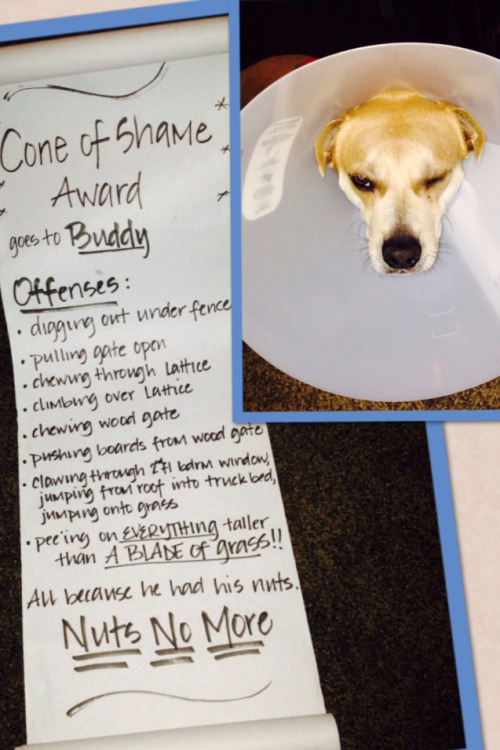 Cone of Shame
Award
goes to Buddy
Offenses:
• digging out under fence
• pulling gate open
• chewing through Lattice
• climbing over Lattice
• chewing wood gate
• pushing boards from wood gate
• clawing through
jumping from roof into truck bed,
jumping onto grass
• pee'ing on EVERYTHING taller
than A BLADE of grass!!
All because he had his nuts.
Nuts No More